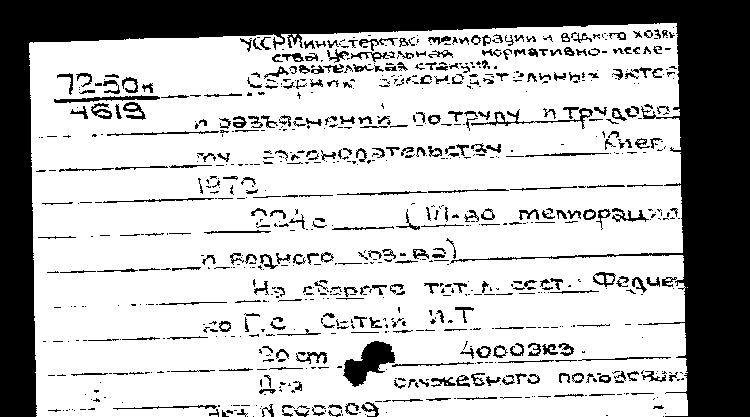 УССР Министерство мелиорации и водного хозяй
ства. Центральная нормативно-иссле-
довательская станция.
72-50н
4619
Сборник законодательных актов
и разъяснений по труду и трудово-
му законодательству. Киев,
1972
224 с (М-во мелиорации
и водного хоз-ва)
На обороте тит. л. сост.: Федчен
ко Г.С., Сытый И.Т
20 cm 4000 экз.
Для служебного пользован
Экз. N 000009